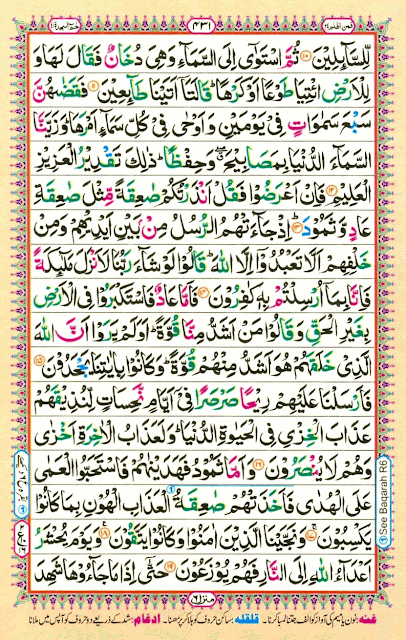 لِّلسَّآئِلِيْنَ ۝۱۰ ثُمَّ اسْتَوٰۤى اِلَى السَّمَآءِ وَهِيَ دُخَانٌ فَقَالَ لَهَا وَ
لِلْاَرْضِ ائْتِيَا طَوْعًا اَوْ كَرْهًا ؕ قَالَتَاۤ اَتَيْنَا طَآئِعِيْنَ ۝۱۱ فَقَضٰىهُنَّ
سَبْعَ سَمٰوَاتٍ فِيْ يَوْمَيْنِ وَاَوْحٰى فِيْ كُلِّ سَمَآءٍ اَمْرَهَا ؕ وَزَيَّنَّا
السَّمَآءَ الدُّنْيَا بِمَصَابِيْحَ ۖ وَحِفْظًا ؕ ذٰلِكَ تَقْدِيْرُ الْعَزِيْزِ
الْعَلِيْمِ ۝۱۲ فَاِنْ اَعْرَضُوْا فَقُلْ اَنْذَرْتُكُمْ صٰعِقَةً مِّثْلَ صٰعِقَةِ
عَادٍ وَّثَمُوْدَ ۝۱۳ اِذْ جَآءَتْهُمُ الرُّسُلُ مِنْۢ بَيْنِ اَيْدِيْهِمْ وَمِنْ
خَلْفِهِمْ اَلَّا تَعْبُدُوْۤا اِلَّا اللّٰهَ ؕ قَالُوْا لَوْ شَآءَ رَبُّنَا لَاَنْزَلَ مَلٰٓئِكَةً
فَاِنَّا بِمَاۤ اُرْسِلْتُمْ بِهٖ كٰفِرُوْنَ ۝۱۴ فَاَمَّا عَادٌ فَاسْتَكْبَرُوْا فِي الْاَرْضِ
بِغَيْرِ الْحَقِّ وَقَالُوْا مَنْ اَشَدُّ مِنَّا قُوَّةً ؕ اَوَلَمْ يَرَوْا اَنَّ اللّٰهَ
الَّذِيْ خَلَقَهُمْ هُوَ اَشَدُّ مِنْهُمْ قُوَّةً ؕ وَكَانُوْا بِاٰيٰتِنَا يَجْحَدُوْنَ ۝۱۵
فَاَرْسَلْنَا عَلَيْهِمْ رِيْحًا صَرْصَرًا فِيْۤ اَيَّامٍ نَّحِسَاتٍ لِّنُذِيْقَهُمْ
عَذَابَ الْخِزْيِ فِي الْحَيٰوةِ الدُّنْيَا ؕ وَلَعَذَابُ الْاٰخِرَةِ اَخْزٰى
وَهُمْ لَا يُنْصَرُوْنَ ۝۱۶ وَاَمَّا ثَمُوْدُ فَهَدَيْنٰهُمْ فَاسْتَحَبُّوا الْعَمٰى
عَلَى الْهُدٰى فَاَخَذَتْهُمْ صٰعِقَةُ الْعَذَابِ الْهُوْنِ بِمَا كَانُوْا
يَكْسِبُوْنَ ۝۱۷ وَنَجَّيْنَا الَّذِيْنَ اٰمَنُوْا وَكَانُوْا يَتَّقُوْنَ ۝۱۸ وَيَوْمَ يُحْشَرُ
اَعْدَآءُ اللّٰهِ اِلَى النَّارِ فَهُمْ يُوْزَعُوْنَ ۝۱۹ حَتّٰۤى اِذَا مَا جَآءُوْهَا شَهِدَ
See Baqarah R6